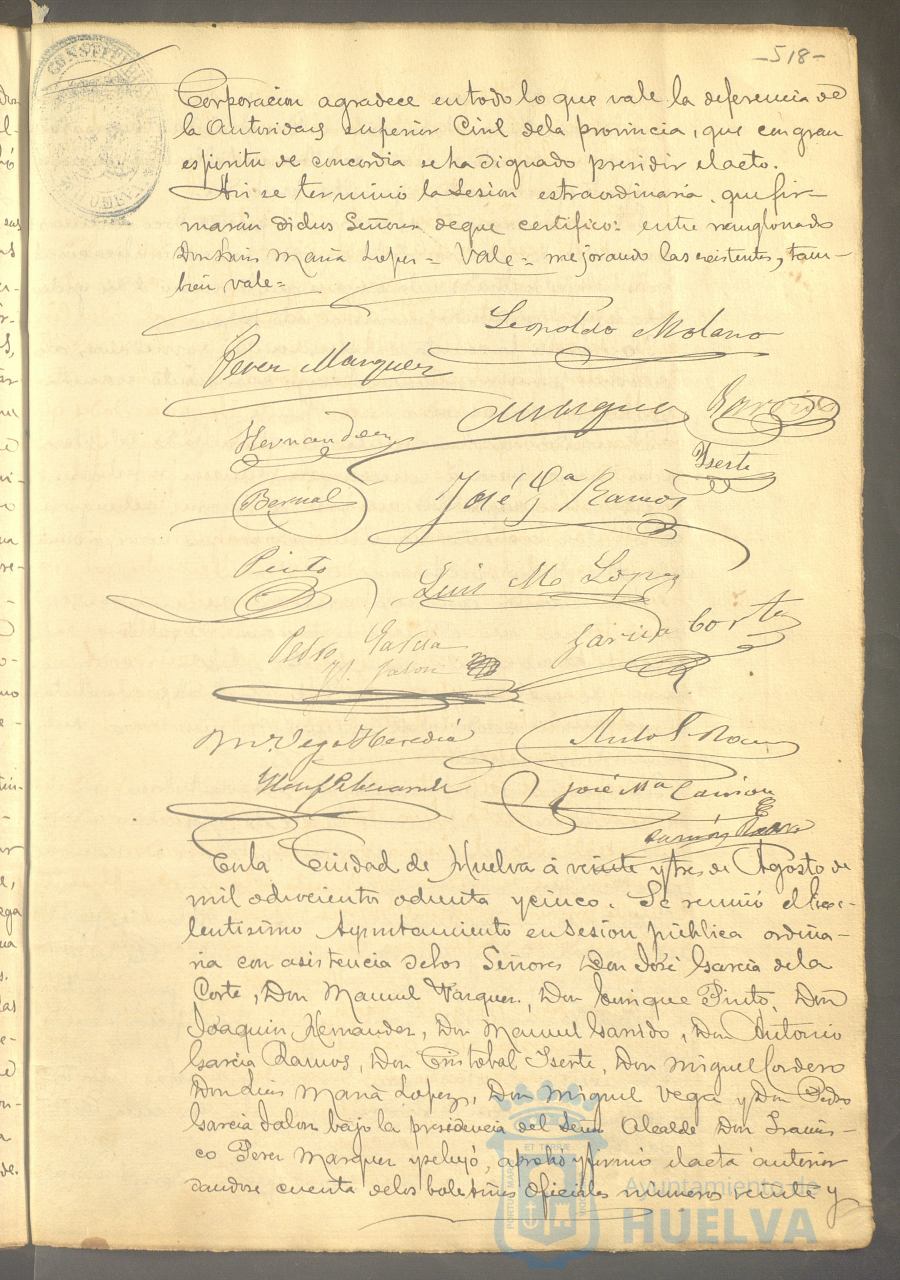 -518-
Corporacion agradece en todo lo que vale la deferencia de
la Autoridad superior Civil dela provincia, que con gran
espiritu de concordia se ha dignado presidir el acto.
Asi se terminó la Sesion estraordinaria que fir-
marán dichos Señores de que certifico: entre renglonado
Don Luis Maria Lopez = Vale = mejorando las existentes, tam-
bien vale =
Leopoldo Molano
Perez Marquez
Hernandez
Yserte
Bernal
José Gª Ramos
Pinto
Luis Mª Lopez
Pedro Garcia
Jalon
Garcia Corte
M. Vega Heredia
José Mª
En la Ciudad de Huelva á veinte y tres de Agosto de
mil ochocientos ochenta y cinco. Se reunió el Exce-
lentisimo Ayuntamiento en Sesion pública ordina-
ria con asistencia delos Señores Don José Garcia dela
Corte, Don Manuel Vazquez, Don Enrique Pinto, Don
Joaquin Hernandez, Don Manuel Garrido, Don Antonio
Garcia Ramos, Don Cristobal Yserte, Don Miguel Cordero
Don Luis Maria Lopez, Don Miguel Vega y Don Pedro
Garcia Jalon bajo la presidencia del Señor Alcalde Don Francis-
co Perez Marquez y se leyó, aprobó y firmó el acta anterior
dandose cuenta delos boletines oficiales numeros veinte y
Ayuntamiento de
HUELVA